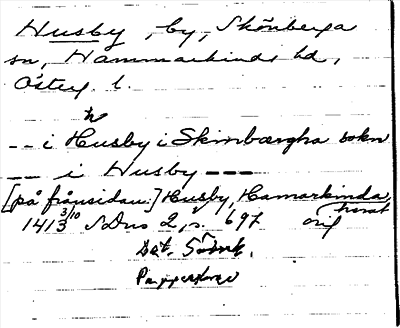 Husby, by, Skönberga
sn, Hammarkinds hd,
Österg. l.
-- i Husby i Skinbærgha sokn
-- i Husby ---
[på frånsidan:] Husby, Hamarkinda
hærat
1413 3/10 SDns 2, s. 697 orig
Det. Sönk.